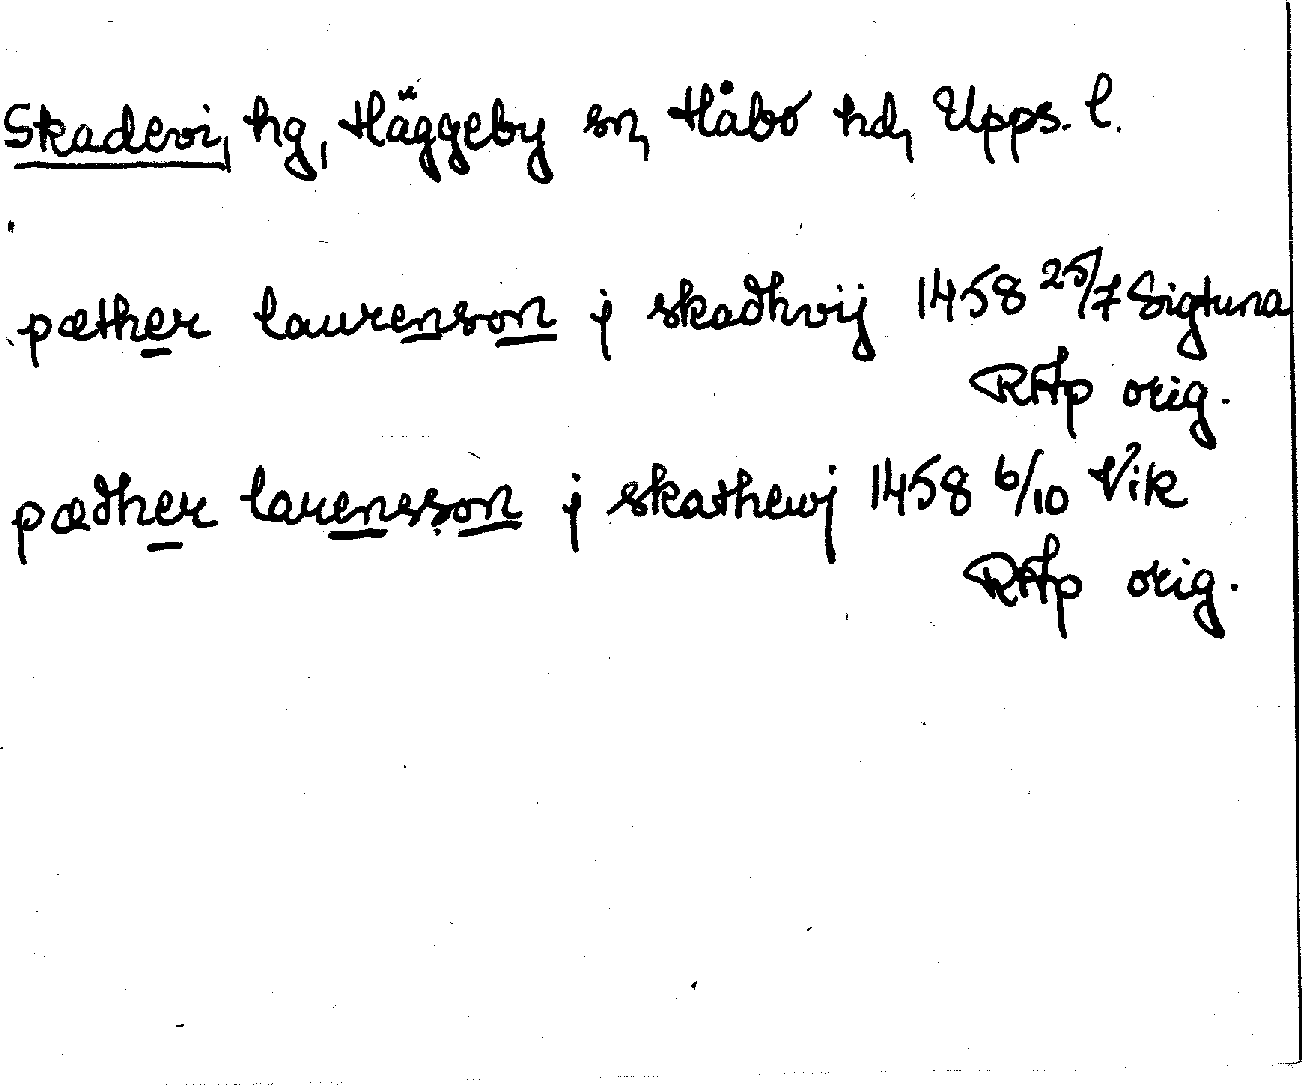 Skadevi, hg, Häggeby sn, Håbo hd, Upps. l.
pæther laurenson j skadhvij 1458 25/7 Sigtuna
RAp orig.
pædher laurensson j skathewj 1458 6/10 Vik
RAp orig.